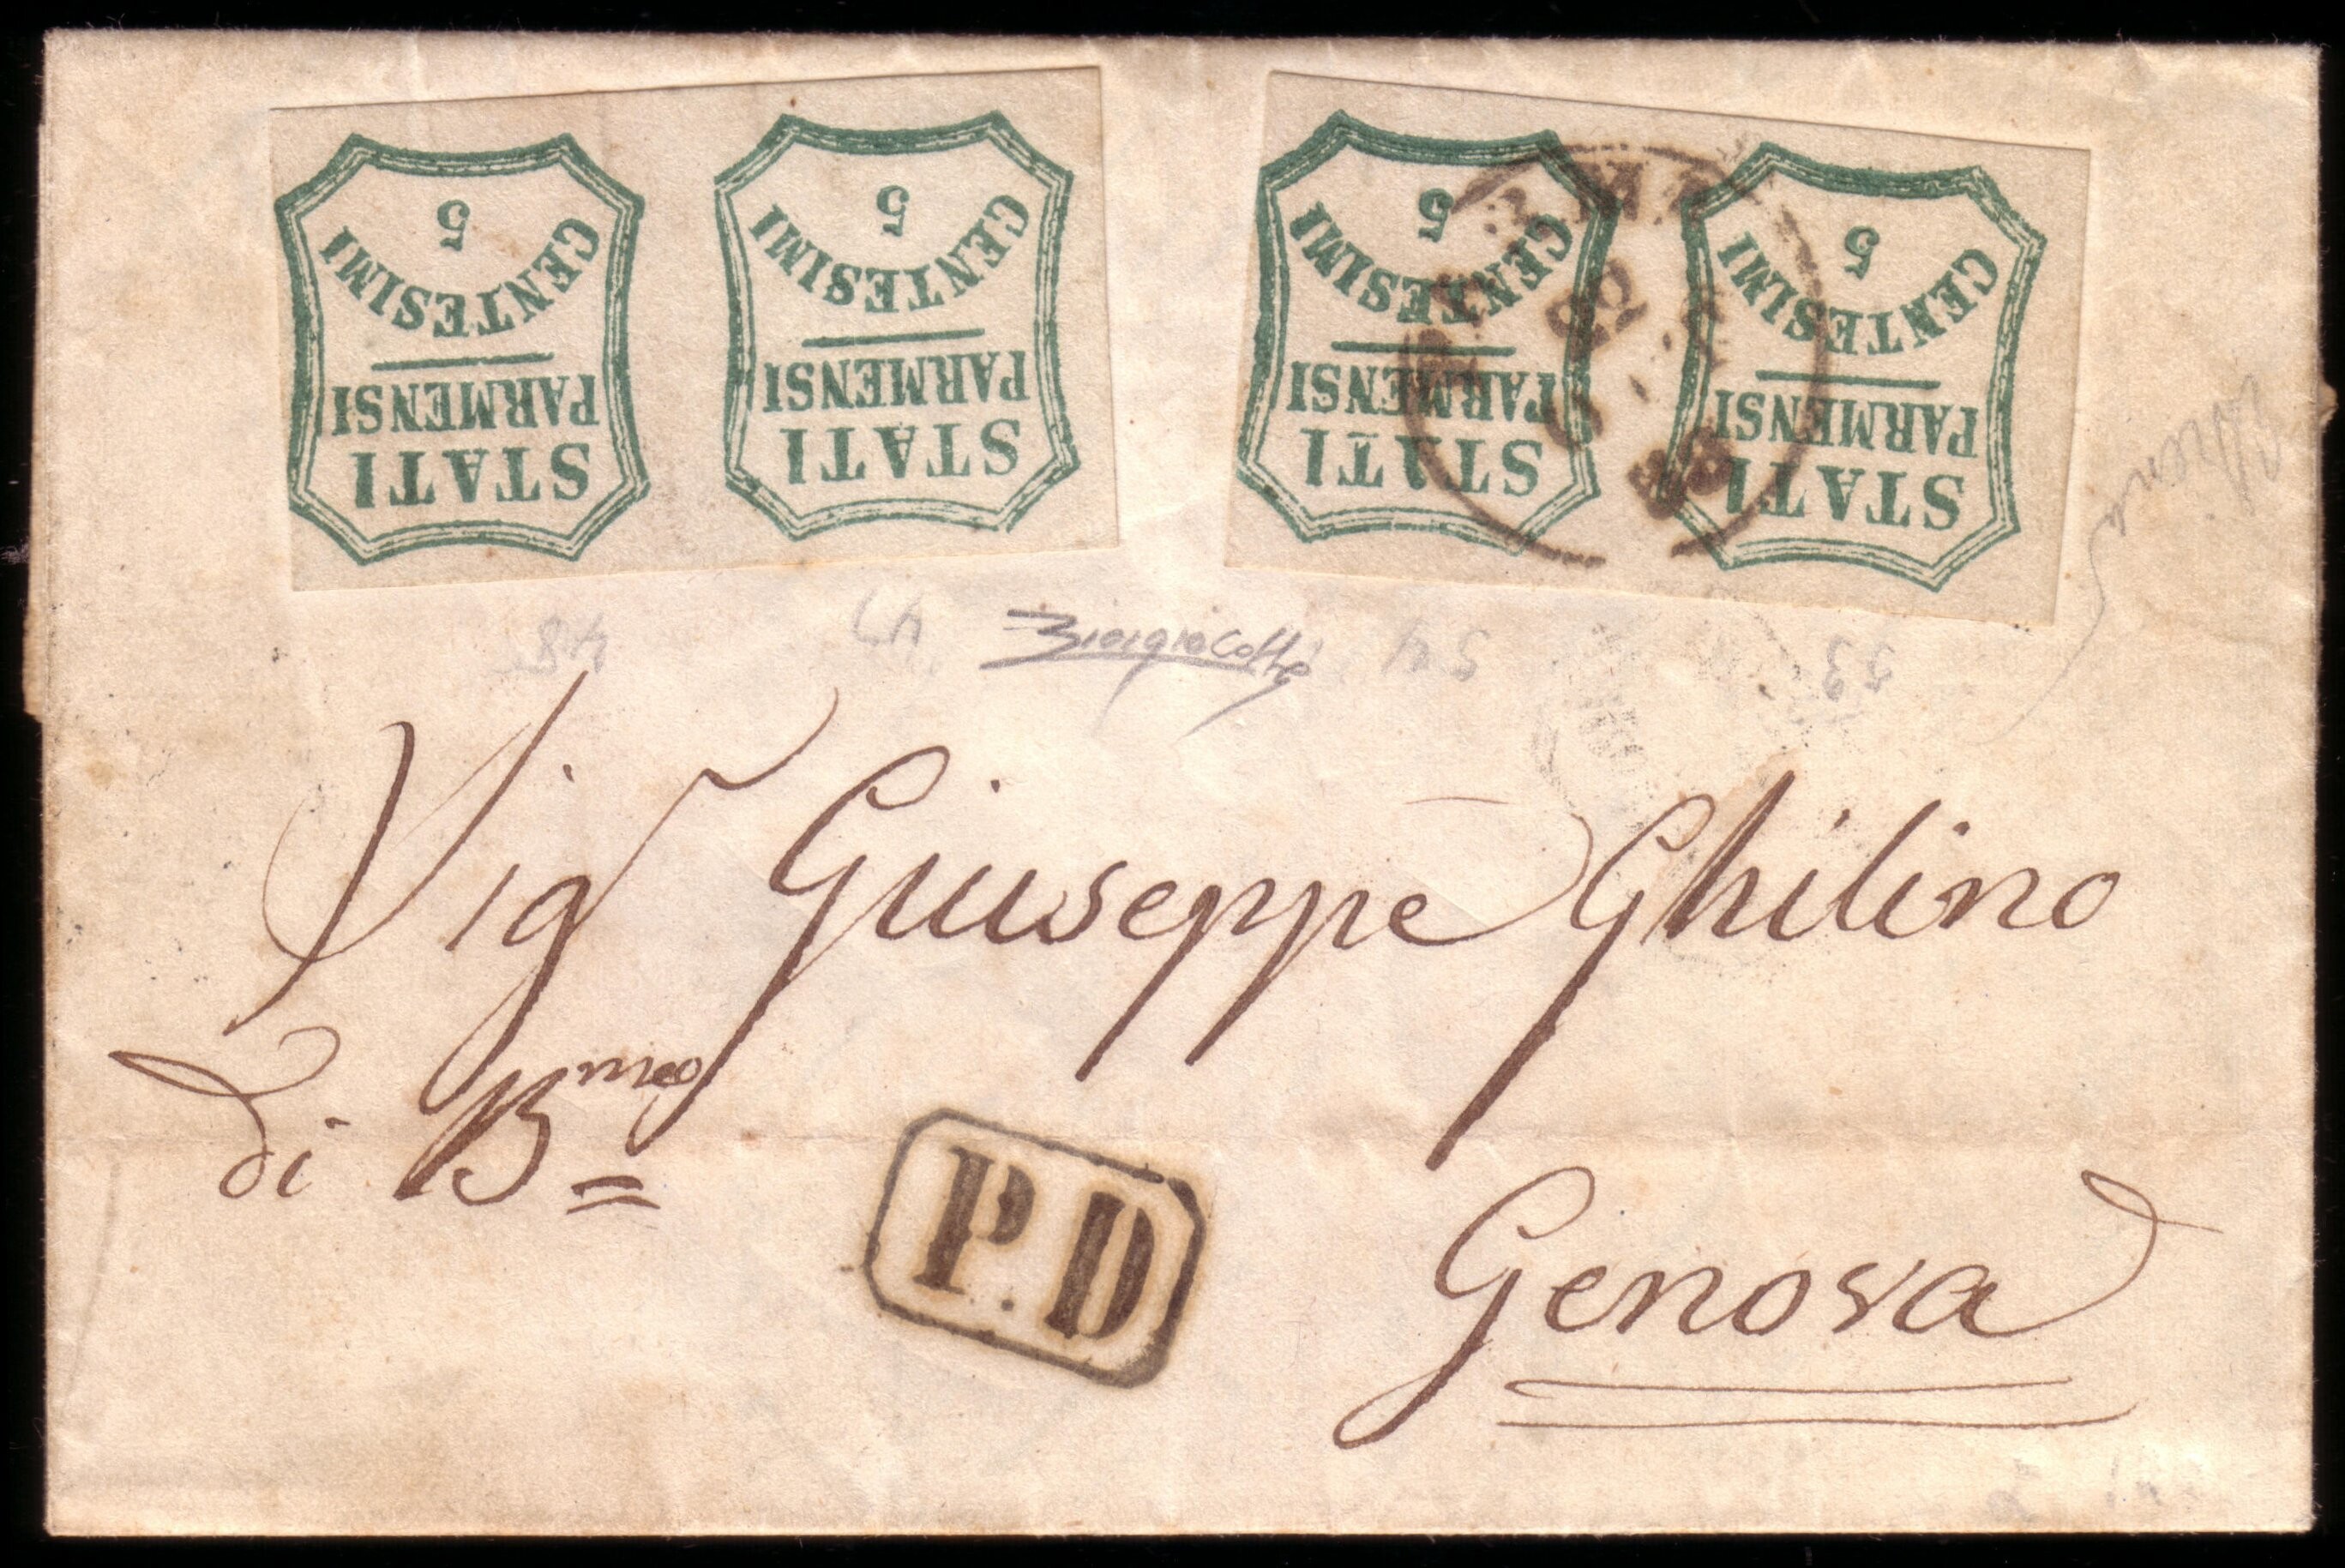 5 CENTESIMI
STATI
PARMENSI
5 CENTESIMI
STATI
PARMENSI
5 CENTESIMI
STATI
PARMENSI
5 CENTESIMI
STATI
PARMENSI
48 47 54 53
Sigr Giuseppe Ghilino
di Bmeo =
P.D
Genova